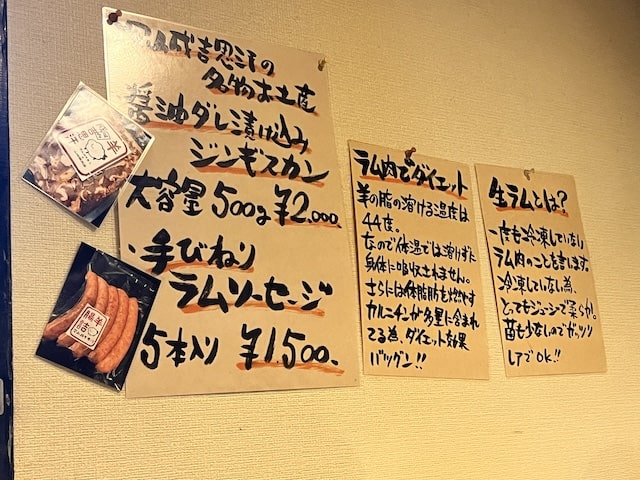 成吉思汗の
名物お土産
醤油ダレ漬け込み
ジンギスカン
大容量500g ¥2,000.
・手びねり
ラムソーセージ
5本入り ¥1,500-
ラム肉でダイエット
羊の脂の溶ける温度は
44度。
なので体温では溶けずに
身体に吸収されません。
さらには体脂肪も燃やす
カルニチンが多量に含まれ
てる為、ダイエット効果
バツグン!!
生ラムとは?
一度も冷凍していない
ラム肉のことを言います。
冷凍していない為、
とってもジューシーで柔らか。
菌も少ないのでガッツリ
レアでOK!!